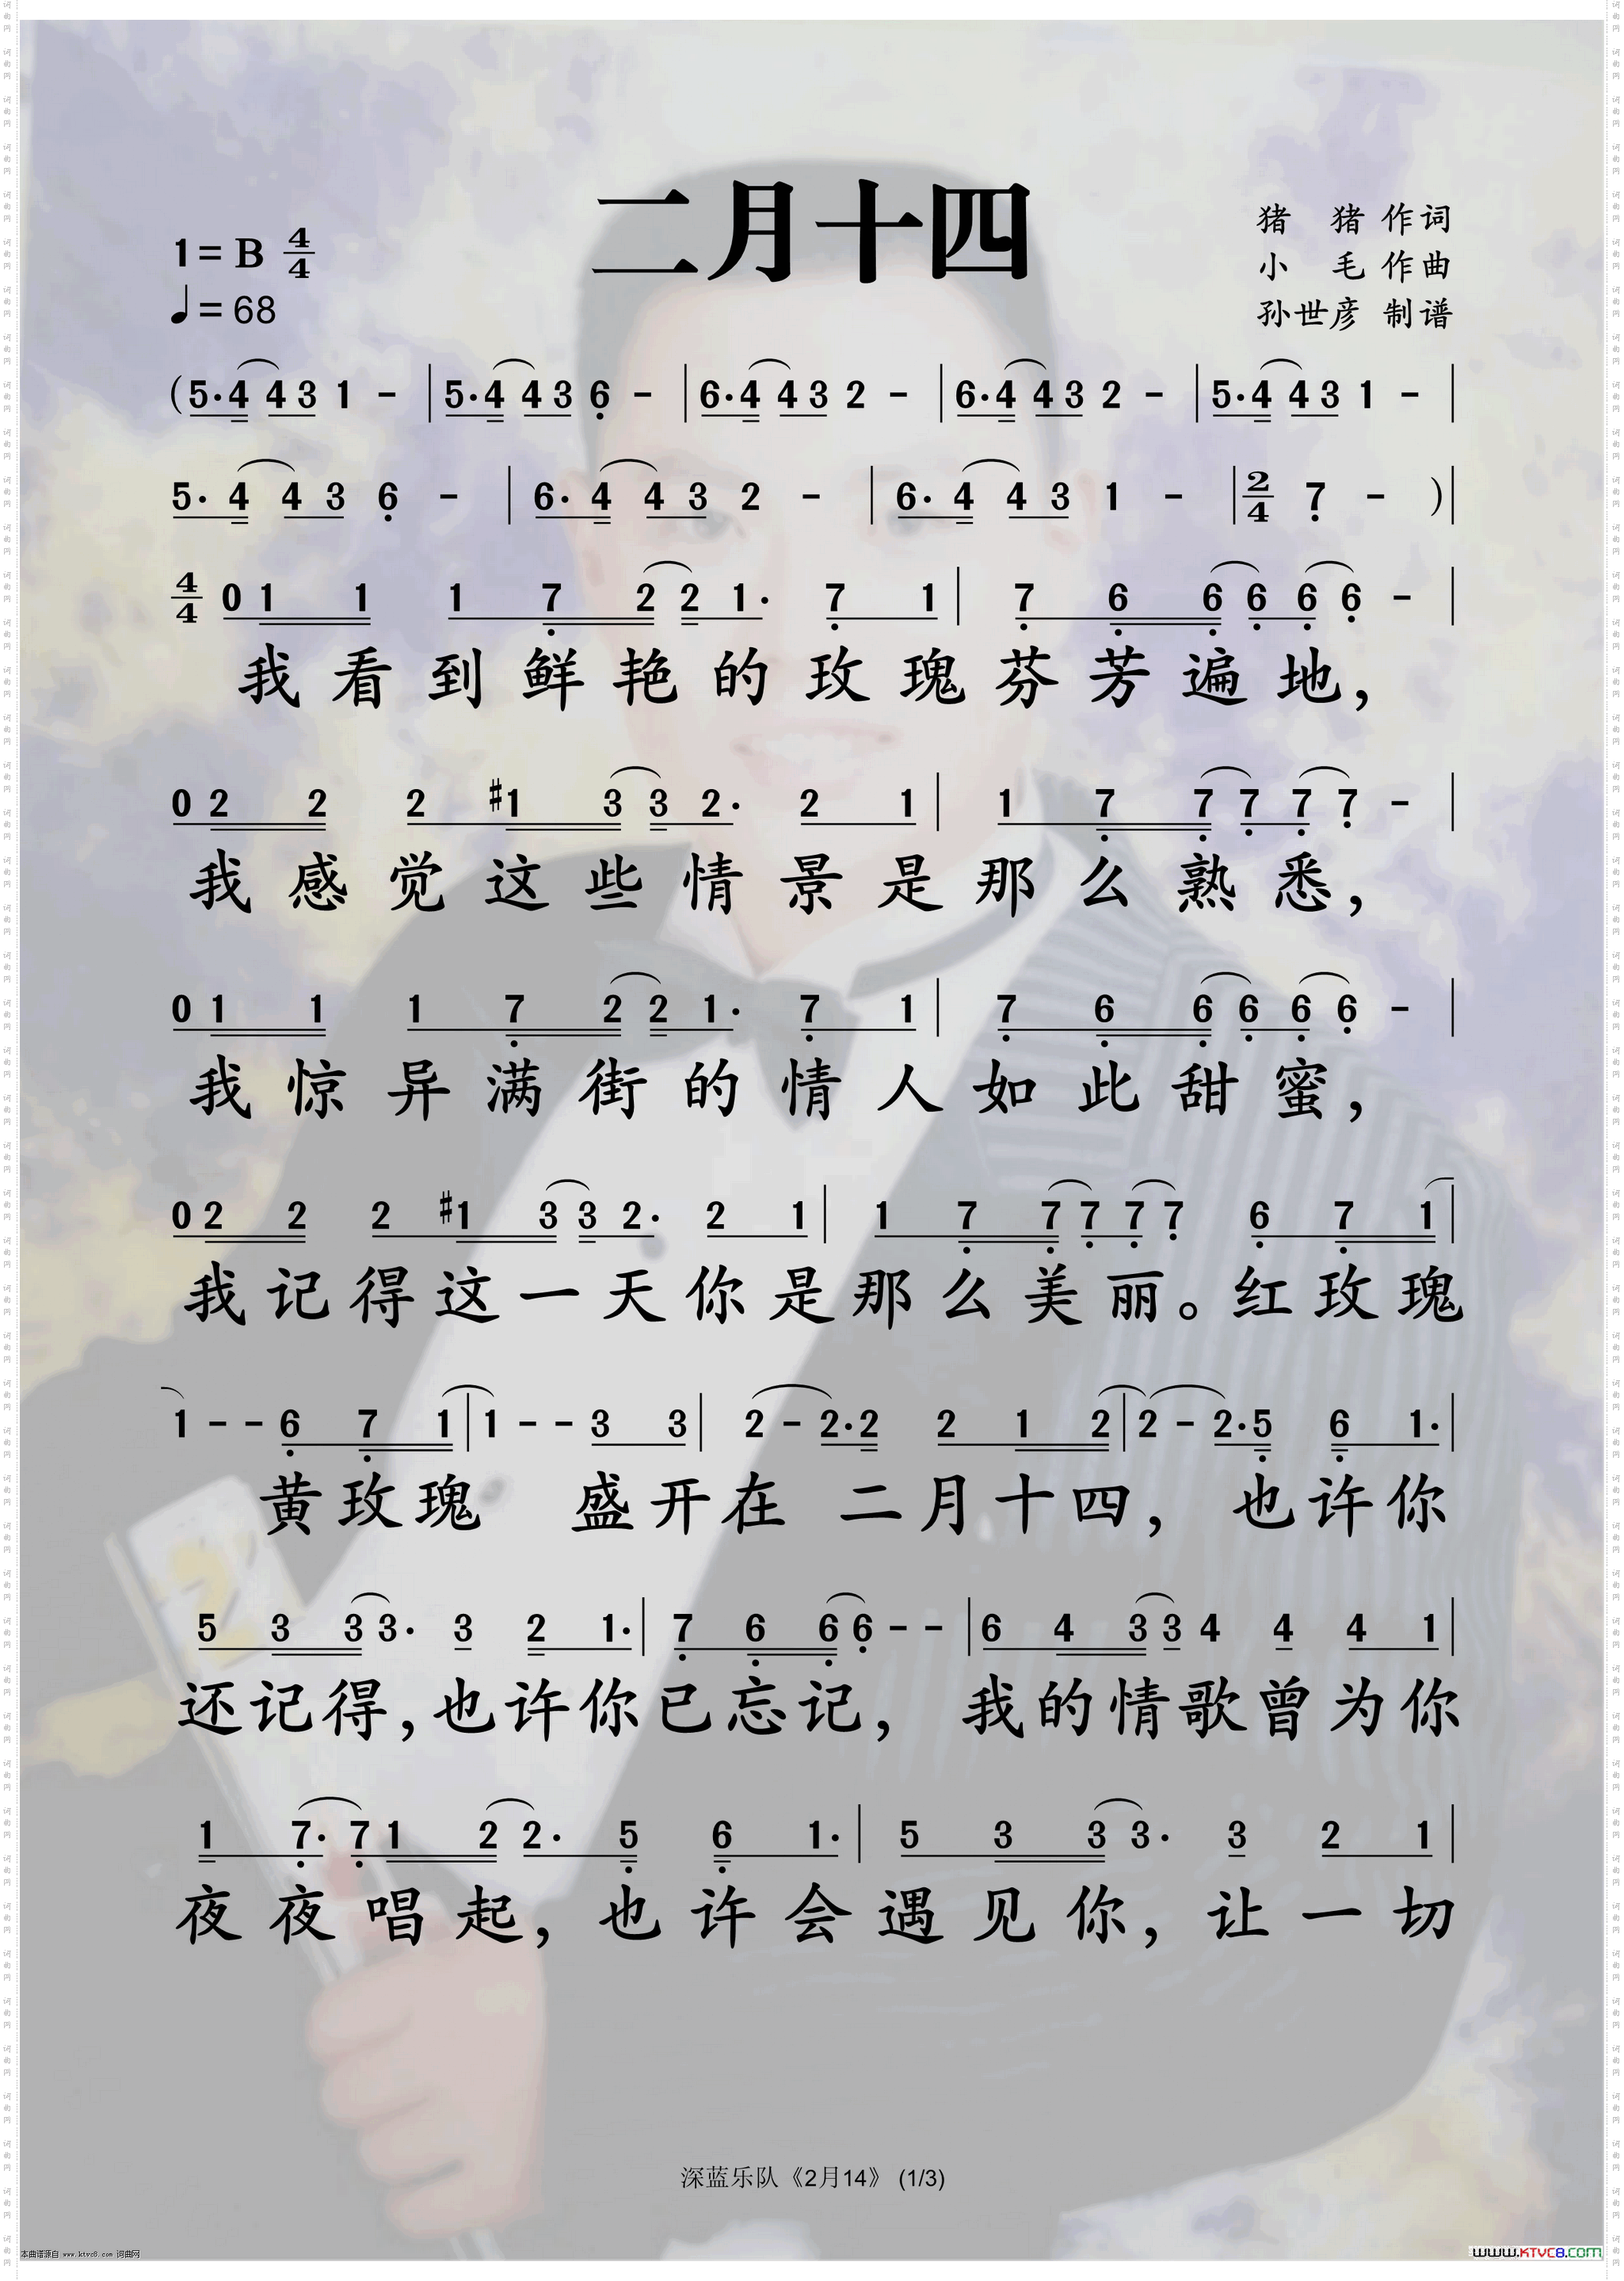 二月十四
1=B 4/4
♩=68
猪 猪 作词
小 毛 作曲
孙世彦 制谱
(5·4 43 1 - | 5·4 43 6 - | 6·4 43 2 - | 6·4 43 2 - | 5·4 43 1 - |
5·4 43 6 - | 6·4 43 2 - | 6·4 43 1 - | 2/4 7 - )|
4/4 0 1 1 1 7 2 2 1· 7 1 | 7 6 6 6 6 6 - |
我看到鲜艳的玫瑰芬芳遍地，
0 2 2 2 #1 3 3 2· 2 1 | 1 7 7 7 7 7 - |
我感觉这些情景是那么熟悉，
0 1 1 1 7 2 2 1· 7 1 | 7 6 6 6 6 6 - |
我惊异满街的情人如此甜蜜，
0 2 2 2 #1 3 3 2· 2 1 | 1 7 7 7 7 7 6 7 1 |
我记得这一天你是那么美丽。红玫瑰
1 - - 6 7 1 | 1 - - 3 3 | 2 - 2·2 2 1 2 | 2 - 2·5 6 1· |
黄玫瑰 盛开在 二月十四，也许你
5 3 3 3· 3 2 1· | 7 6 6 6 - - | 6 4 3 3 4 4 4 1 |
还记得，也许你已忘记，我的情歌曾为你
1 7· 7 1 2 2· 5 6 1· | 5 3 3 3· 3 2 1 |
夜夜唱起，也许会遇见你，让一切
深蓝乐队《2月14》 (1/3)
本曲谱源自 www.ktvc8.com 词曲网
www.KTVC8.com